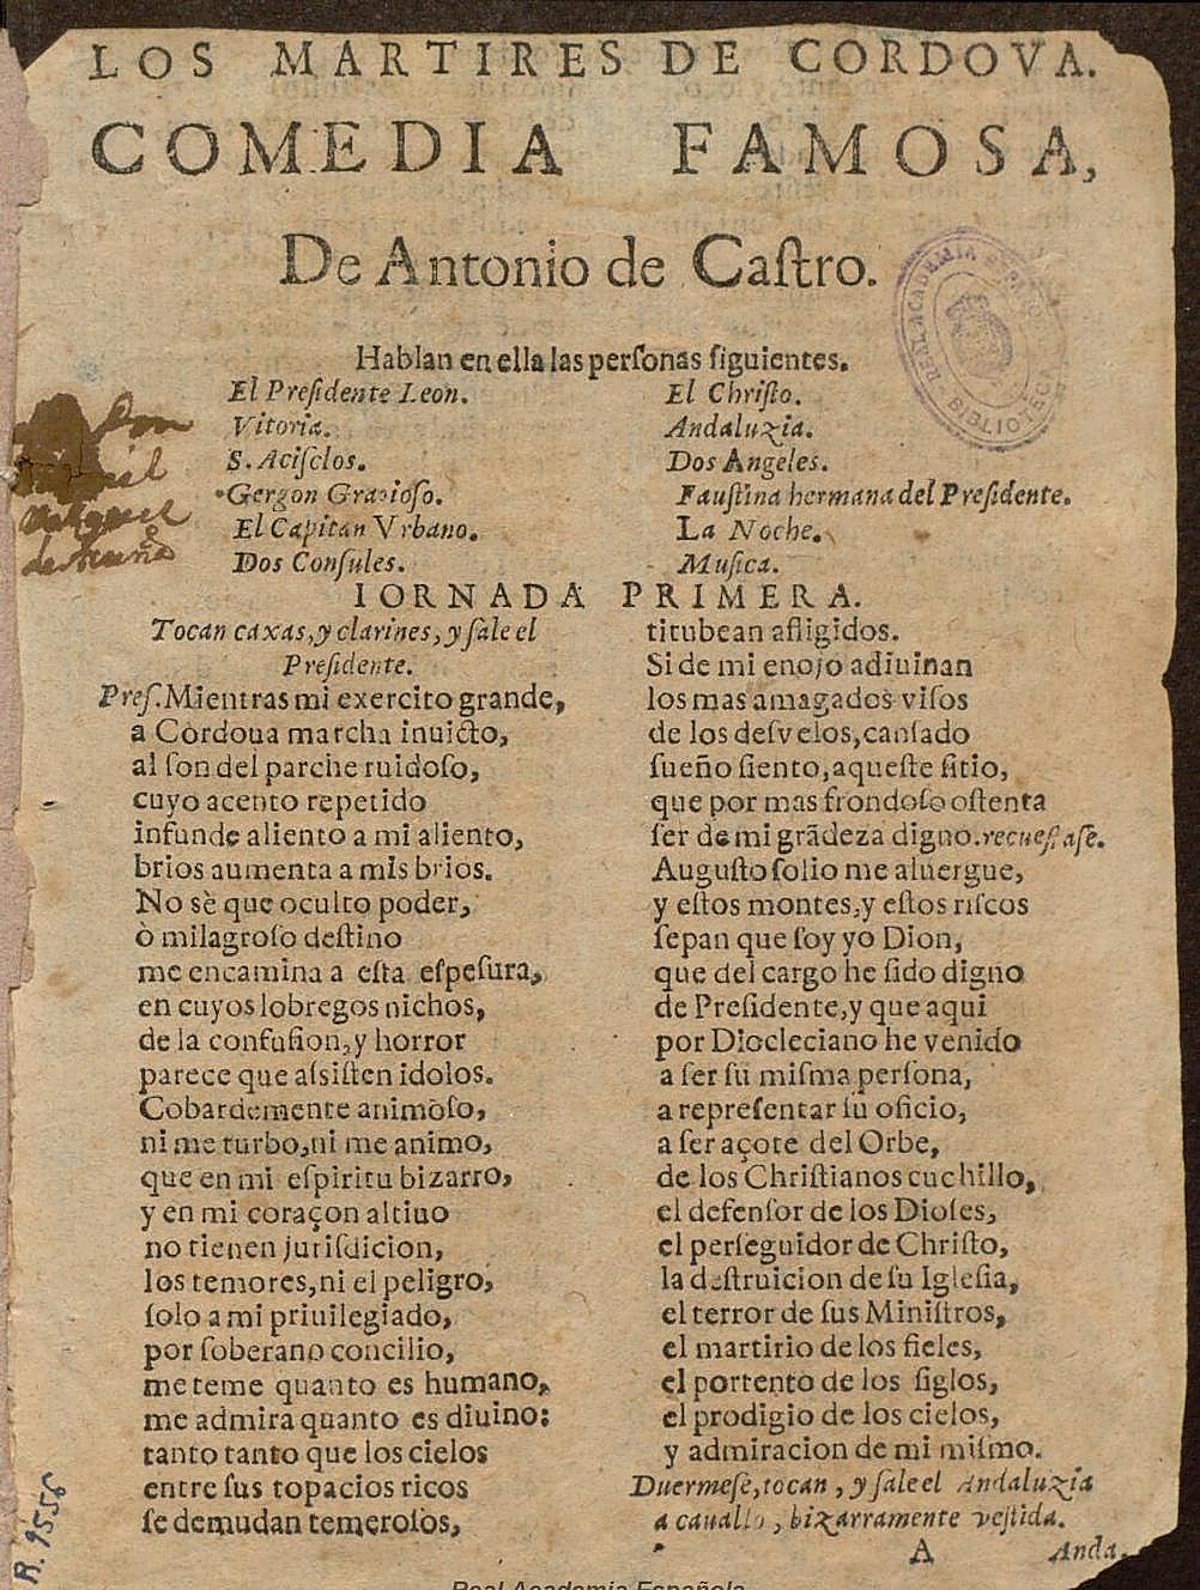 LOS MARTIRES DE CORDOVA.
COMEDIA FAMOSA,
De Antonio de Caſtro.
Hablan en ella las perſonas ſiguientes.
El Preſidente Leon.
Vitoria.
S. Aciſclos.
Gergon Gracioſo.
El Capitan Vrbano.
Dos Conſules.
El Chriſto.
Andaluzia.
Dos Angeles.
Fauſtina hermana del Preſidente.
La Noche.
Muſica.
Don
de Acuña
REAL ACADEMIA ESPAÑOLA
BIBLIOTECA
IORNADA PRIMERA.
Tocan caxas, y clarines, y ſale el
Preſidente.
Preſ. Mientras mi exercito grande,
a Cordoua marcha inuicto,
al ſon del parche ruidoſo,
cuyo acento repetido
infunde aliento a mi aliento,
brios aumenta a mis brios.
No sè que oculto poder,
ò milagroſo deſtino
me encamina a eſta eſpeſura,
en cuyos lobregos nichos,
de la confuſion, y horror
parece que aſsiſten idolos.
Cobardemente animoſo,
ni me turbo, ni me animo,
que en mi eſpiritu bizarro,
y en mi coraçon altiuo
no tienen juriſdicion,
los temores, ni el peligro,
ſolo a mi priuilegiado,
por ſoberano concilio,
me teme quanto es humano,
me admira quanto es diuino:
tanto tanto que los cielos
entre ſus topacios ricos
ſe demudan temeroſos,
titubean afligidos.
Si de mi enojo adiuinan
los mas amagados viſos
de los deſvelos, canſado
ſueño ſiento, aqueſte ſitio,
que por mas frondoſo oſtenta
ſer de mi grãdeza digno. recueſtaſe.
Auguſto ſolio me aluergue,
y eſtos montes, y eſtos riſcos
ſepan que ſoy yo Dion,
que del cargo he ſido digno
de Preſidente, y que aqui
por Diocleciano he venido
a ſer ſu miſma perſona,
a repreſentar ſu oficio,
a ſer açote del Orbe,
de los Chriſtianos cuchillo,
el defenſor de los Dioſes,
el perſeguidor de Chriſto,
la deſtruicion de ſu Igleſia,
el terror de ſus Miniſtros,
el martirio de los fieles,
el portento de los ſiglos,
el prodigio de los cielos,
y admiracion de mi miſmo.
Duermeſe, tocan, y ſale el Andaluzia
a cauallo, bizarramente veſtida.
A
Anda.
R. 9556
Real Academia Española